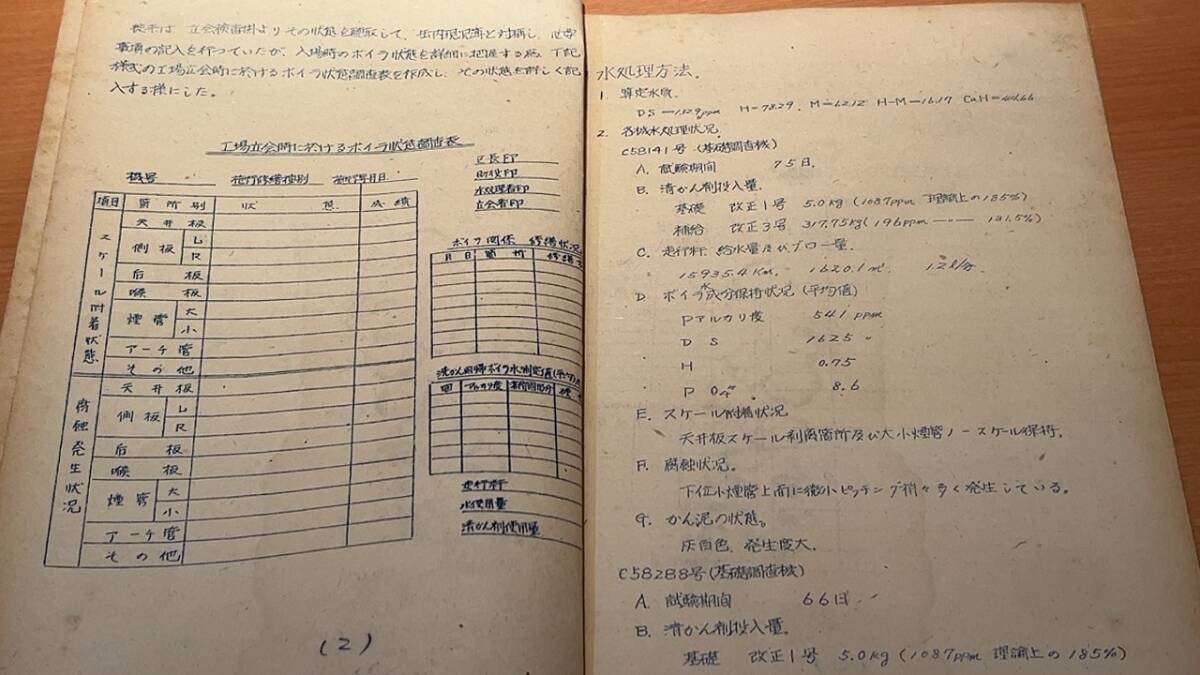 表示は 立会検査掛よりその状態を聴取して、缶内現況簿と対稱し、他要
事項の記入を行っていたが、入場時のボイラ状態を詳細に把握する爲、下記
様式の工場立会時に於けるボイラ状態調査表を作成し、その状態を詳しく記
入する様にした。
工場立会時に於けるボイラ状態調査表
機号 施行修繕種別 施行年月日
区長印
助役印
水処理者印
立会者印
項目 箇所別 状態 成績
スケール附着状態
天井板
側板 L
R
后板
喉板
煙管 大
小
アーチ管
その他
腐蝕発生状況
天井板
側板 L
R
后板
喉板
煙管 大
小
アーチ管
その他
ボイラ関係 修繕状況
月日 箇所 修繕
洗かん回帰ボイラ水測定値
回 アルカリ度
走行粁
水使用量
清かん剤使用量
(2)
水処理方法.
1. 算定水質.
DS=132.9ppm H=78.29. M=62.12 H-M=16.17 CaH=46.66
2. 各城水処理状況.
C58141号(基礎調査機)
A. 試験期間 75日.
B. 清かん剤投入量.
基礎 改正1号 5.0kg(1087ppm 理論上の185%)
補給 改正3号 317.75kg(196ppm 〃 131.5%)
C. 走行粁. 給水量及びブロー量.
15935.4Km. 1620.1㎥. 1.2ℓ/分.
D ボイラ水成分保持状況(平均値)
Pアルカリ度 541 ppm
D S 1625 〃
H 0.75
P O₄‴ 8.6
E. スケール附着状況
天井板スケール剥離箇所及び大小煙管ノースケール保持.
F. 腐蝕状況.
下位小煙管上面に微小ピッチング稍々多く発生している。
G. かん泥の状態。
灰白色. 発生度大.
C58288号(基礎調査機)
A. 試験期間 66日.
B. 清かん剤投入量.
基礎 改正1号 5.0kg(1087ppm 理論上の185%)